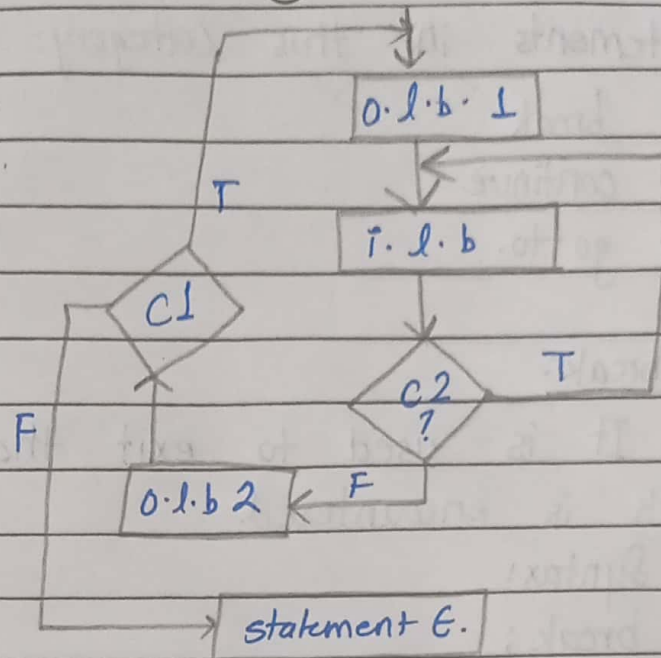 o.l.b. 1
T
i.l.b
C1
C2
?
T
F
F
o.l.b 2
statement E.